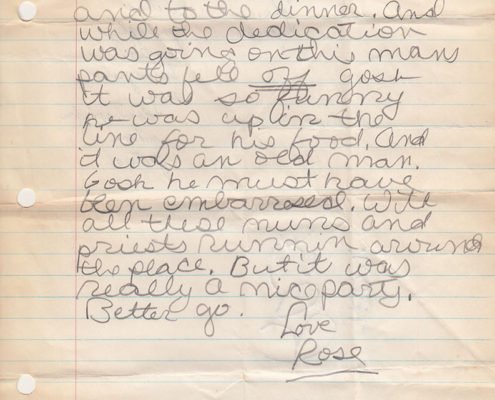 and to the dinner. And
while the dedication
was going on this mans
pants fell off gosh
it was so funny
he was up in the
line for his food. And
it was an old man.
Gosh he must have
been embarrassed. With
all these nuns and
priests runnin around
the place. But it was
really a nice party.
Better go.
Love
Rose